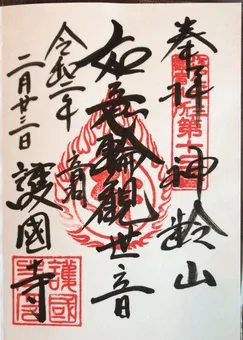 奉拝 神齢山
如意輪観世音
令和二年
二月廿三日
音羽
護國寺
護國寺